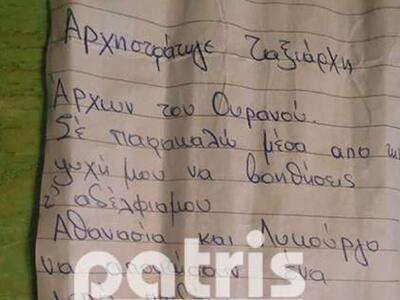 Αρχηστράτηγε Ταξιάρχη
Άρχων του Ουρανού.
Σέ παρακαλώ μέσα απο την
ψυχή μου να βοηθήσεις
τ' αδέλφιαμου
Αθανασία και Λυκούργο
να αποκτήσουν ένα
patris